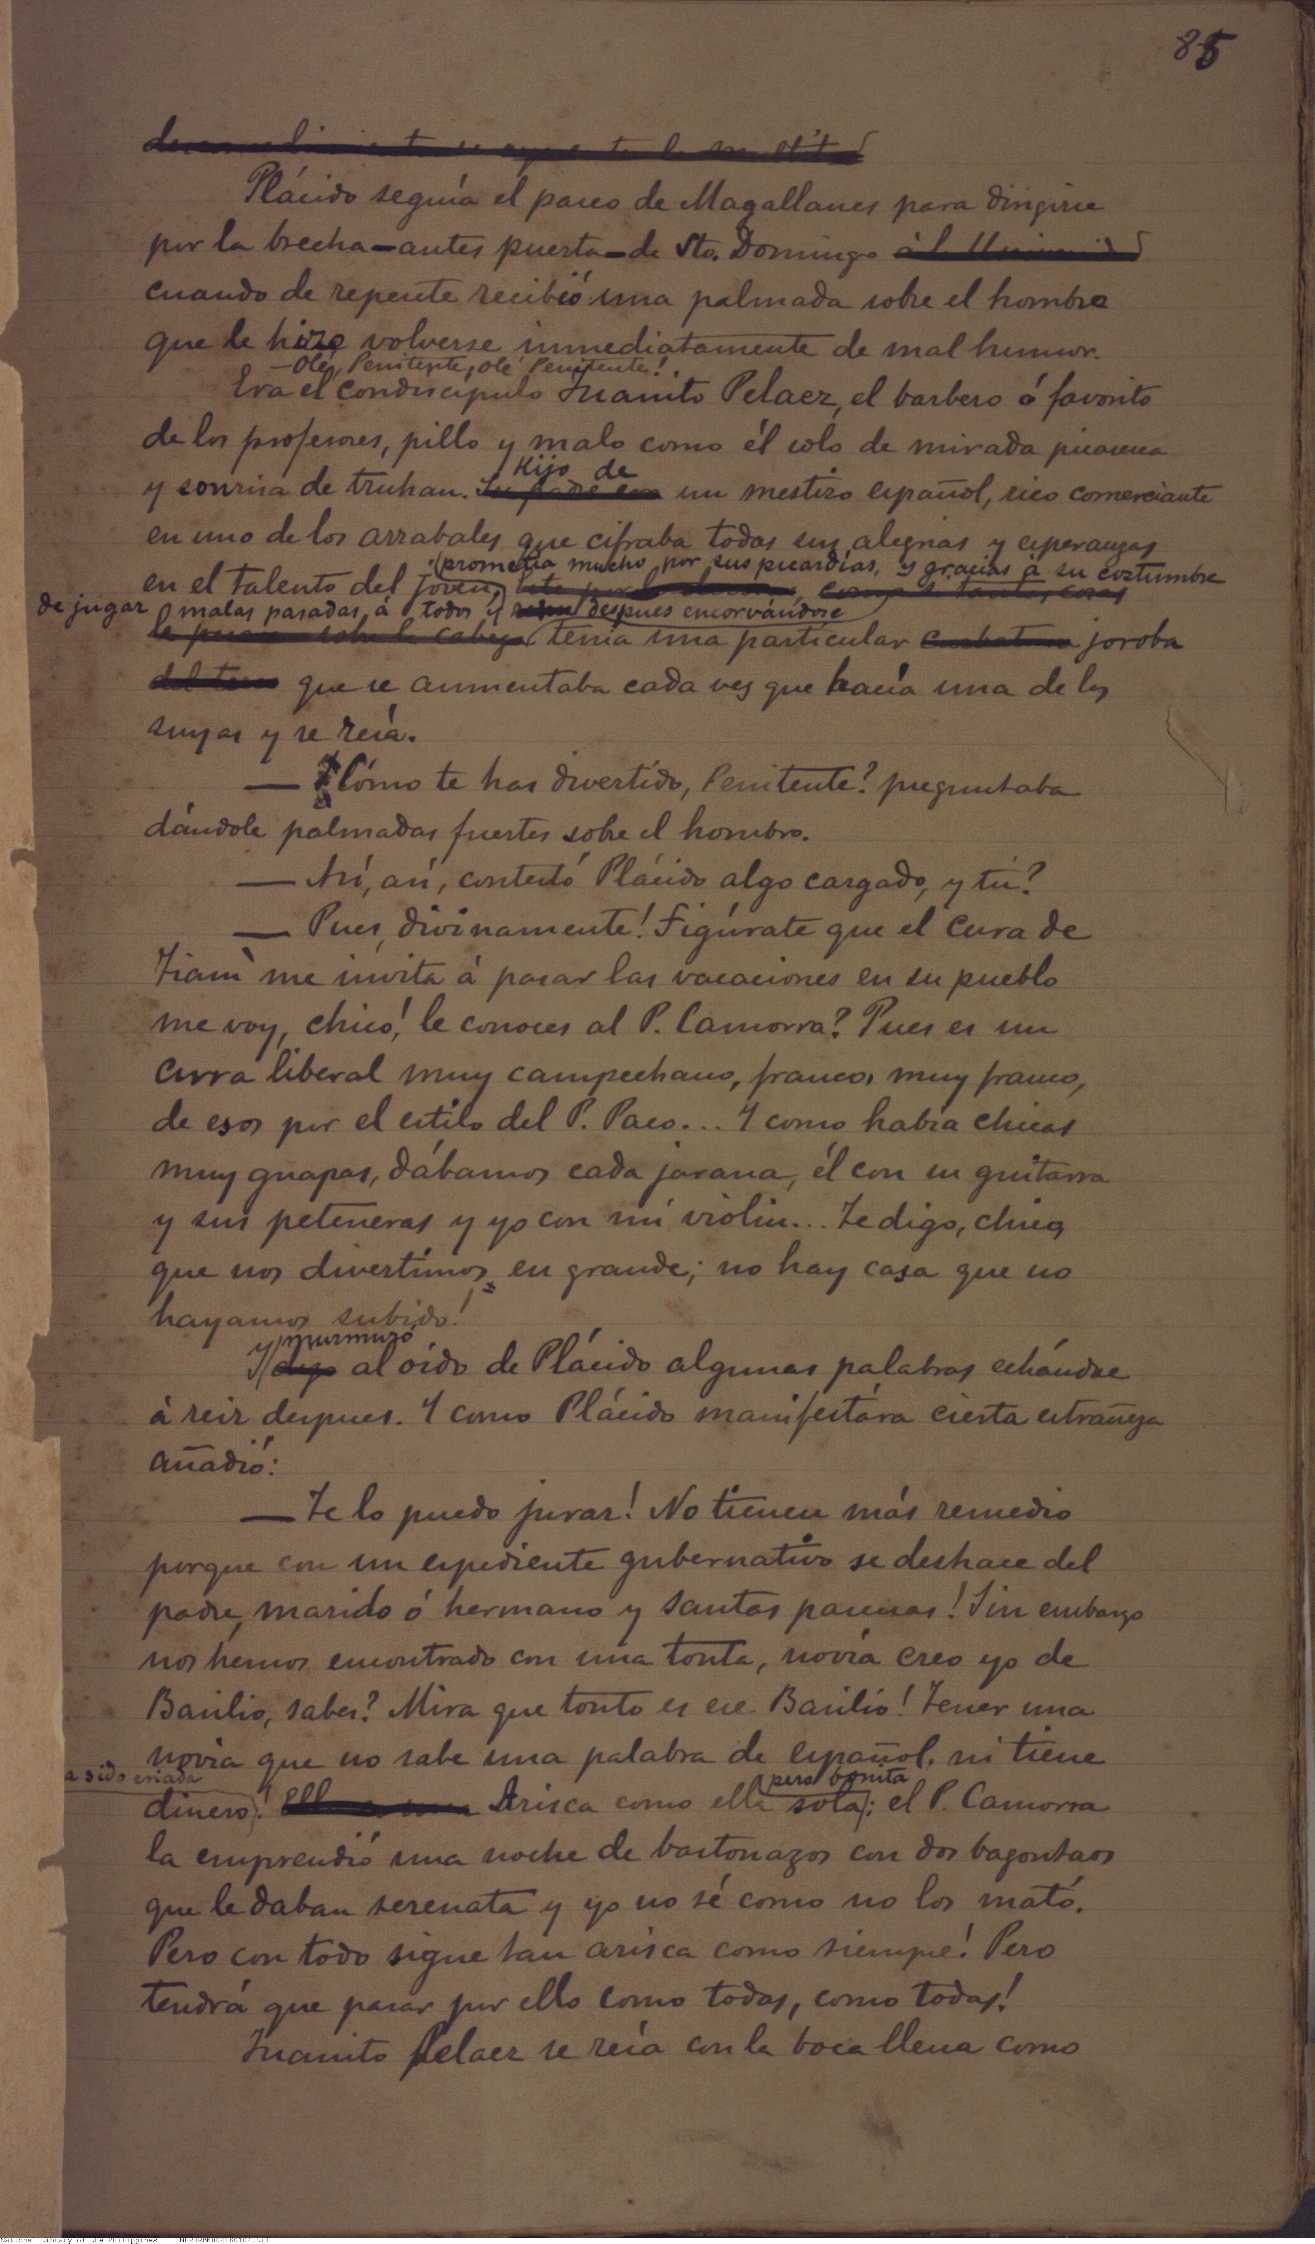 85
Plácido seguía el paseo de Magallanes para dirigirse
por la brecha—antes puerta—de Sto. Domingo
cuando de repente recibió una palmada sobre el hombro
que le hizo volverse inmediatamente de mal humor.
—Olé, Penitente, olé Penitente!
Era el condiscípulo Juanito Pelaez, el barbero ó favorito
de los profesores, pillo y malo como él solo de mirada picaresca
y sonrisa de truhan. Hijo de un mestizo español, rico comerciante
en uno de los arrabales que cifraba todas sus alegrias y esperanzas
en el talento del joven, prometía mucho por sus picardías, y gracias á su costumbre
de jugar malas pasadas, á todos y despues encorvándose
tenía una particular joroba
que se aumentaba cada vez que hacía una de las
suyas y se reía.
— ¿Cómo te has divertido, Penitente? preguntaba
dándole palmadas fuertes sobre el hombro.
— Así, así, contestó Plácido algo cargado, y tú?
— Pues, divinamente! Figúrate que el cura de
Tianì me invita á pasar las vacaciones en su pueblo
me voy, chico! le conoces al P. Camorra? Pues es un
cura liberal muy campechano, franco, muy franco,
de esos por el estilo del P. Paco... Y como había chicas
muy guapas, dábamos cada jarana, él con su guitarra
y sus peteneras y yo con mi violin... Te digo, chico,
que nos divertimos en grande; no hay casa que no
hayamos subido!
Y murmuró al oído de Plácido algunas palabras echándose
á reir despues. Y como Plácido manifestára cierta estrañeza
añadió:
— Te lo puedo jurar! No tienen más remedio
porque con un espediente gubernativo se deshace del
padre, marido ó hermano y santas pascuas! Sin embargo
nos hemos encontrado con una tonta, novia creo yo de
Basilio, sabes? Mira que tonto es ese Basilio! Tener una
novia que no sabe una palabra de español, ni tiene
a sido criada
dinero! Arisca como ella sola pero bonita: el P. Camorra
la emprendió una noche de bastonazos con dos bagontaos
que le daban serenata y yo no sé como no los mató.
Pero con todo sigue tan arisca como siempre! Pero
tendrá que pasar por ello como todas, como todas!
Juanito Pelaez se reía con la boca llena como